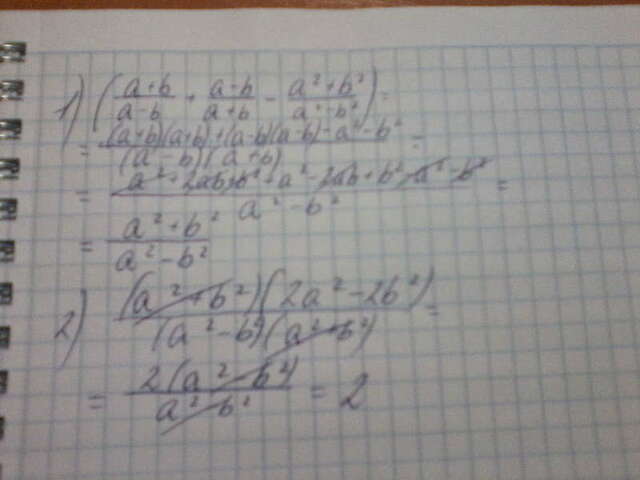 1) ((a+b)/(a-b) + (a-b)/(a+b) - (a²+b²)/(a²-b²)) =
= ((a+b)(a+b)+(a-b)(a-b)-a²-b²)/((a-b)(a+b)) =
= (a²+2ab+b²+a²-2ab+b²-a²-b²)/(a²-b²) =
= (a²+b²)/(a²-b²)
2) ((a²+b²)(2a²-2b²))/((a²-b²)(a²+b²)) =
= (2(a²-b²))/(a²-b²) = 2